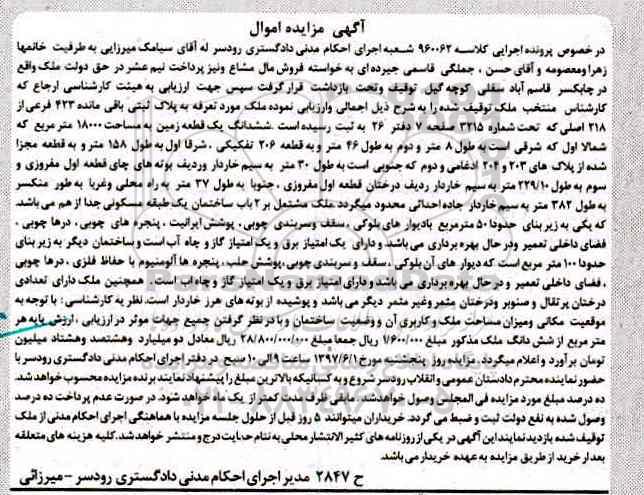 آگهی مزایده اموال
در خصوص پرونده اجرایی کلاسه ۹۶۰۰۶۲ شعبه اجرای احکام مدنی دادگستری رودسر له آقای سیامک میرزایی به طرفیت خانمها
زهرا ومعصومه و آقای حسن ، جملگی قاسمی جیرده ای به خواسته فروش مال مشاع ونیز پرداخت نیم عشر در حق دولت ملک واقع
در چابکسر قاسم آباد سفلی کوچه گیل توقیف وتحت بازداشت قرار گرفت سپس جهت ارزیابی به هیئت کارشناسی ارجاع که
کارشناس منتخب ملک توقیف شده را به شرح ذیل اجمالی وارزیابی نموده ملک مورد تعرفه به پلاک ثبتی باقی مانده ۴۲۳ فرعی از
۲۱۸ اصلی که تحت شماره ۳۲۱۵ صفحه ۷ دفتر ۲۶ به ثبت رسیده است .ششدانگ یک قطعه زمین به مساحت ۱۸۰۰۰ متر مربع که
شمالا اول که شرقی است به طول ۸ متر و دوم به طول ۴۶ متر و به قطعه ۲۰۶ تفکیکی ، شرقا اول به طول ۱۵۸ متر و به قطعه مجزا
شده از پلاک های ۲۰۳ و ۲۰۴ ادغامی و دوم که جنوبی است به طول ۳۰ متر به سیم خاردار وردیف بوته های چای قطعه اول مفروزی و
سوم به طول ۲۲۹/۱۰ متر به سیم خاردار ردیف درختان قطعه اول مفروزی ، جنوبا به طول ۳۷ متر به راه محلی وغربا به طور منکسر
به طول ۳۸۲ متر به سیم خاردار جاده احداثی محدود میگردد ملک مشتمل بر ۲ باب ساختمان یک طبقه مسکونی جدا از هم می باشد.
که یکی به زیر بنای حدودا ۵۰ مترمربع بادیوار های بلوکی ، سقف وسربندی چوبی ، پوشش ایرانیت ، پنجره های چوبی ، درها چوبی ،
فضای داخلی تعمیر ودر حال بهره برداری می باشد و دارای یک امتیاز برق و یک امتیاز گاز و چاه آب است و ساختمان دیگر به زیر بنای
حدودا ۱۰۰ متر مربع است که دیوار های آن بلوکی ، سقف و سربندی چوبی ،پوشش حلب ، پنجره ها آلومنیوم با حفاظ فلزی ، درها چوبی
، فضای داخلی تعمیر و در حال بهره برداری می باشد و دارای امتیاز برق و یک امتیاز گاز و چاه اب است. . همچنین ملک دارای تعدادی
درختان پرتقال و صنوبر ودرختان مثمر وغیر مثمر دیگر می باشد و پوشیده از بوته های هرز خاردار است. نظر یه کارشناسی : با توجه به
موقعیت مکانی ومیزان مساحت ملک و کاربری آن و وضعیت ساختمان و با در نظر گرفتن جمیع جهات موثر در ارزیابی ، ارزش پایه هر
متر مربع از شش دانگ ملک مذکور مبلغ ۱/۶۰۰/۰۰۰ ریال جمعا مبلغ ۲۸/۸۰۰/۰۰۰/۰۰۰ ریال معادل دو میلیارد وهشتصد وهشتاد میلیون
تومان برآورد و اعلام میگردد . مزایده روز پنجشنبه مورخ ۱۳۹۷/۶/۱ ساعت ۹ الی ۱۰ صبح در دفتر اجرای احکام مدنی دادگستری رودسر با
حضور نماینده محترم دادستان عمومی و انقلاب رودسر شروع و به کسانیکه بالاترین مبلغ را پیشنهاد نمایند برنده مزایده محسوب خواهد شد.
ده درصد مبلغ مورد مزایده فی المجلس وصول خواهدشد. مابقی ظرف مدت کمتر از یک ماه خواهد شود. در صورت عدم پرداخت ده درصد
وصول شده به نفع دولت ثبت و ضبط می گردد. خریداران میتوانند ۵ روز قبل از حلول جلسه مزایده با هماهنگی اجرای احکام مدنی از ملک
توقیف شده بازدید نمایند این آگهی در یکی از روزنامه های کثیر الانتشار محلی به نام حمایت درج و منتشر خواهد شد. کلیه هزینه های متعلقه
بعد از خرید از طریق مزایده به عهده خریدار می باشد.
ح ۲۸۴۷ مدیر اجرای احکام مدنی دادگستری رودسر -میرزائی